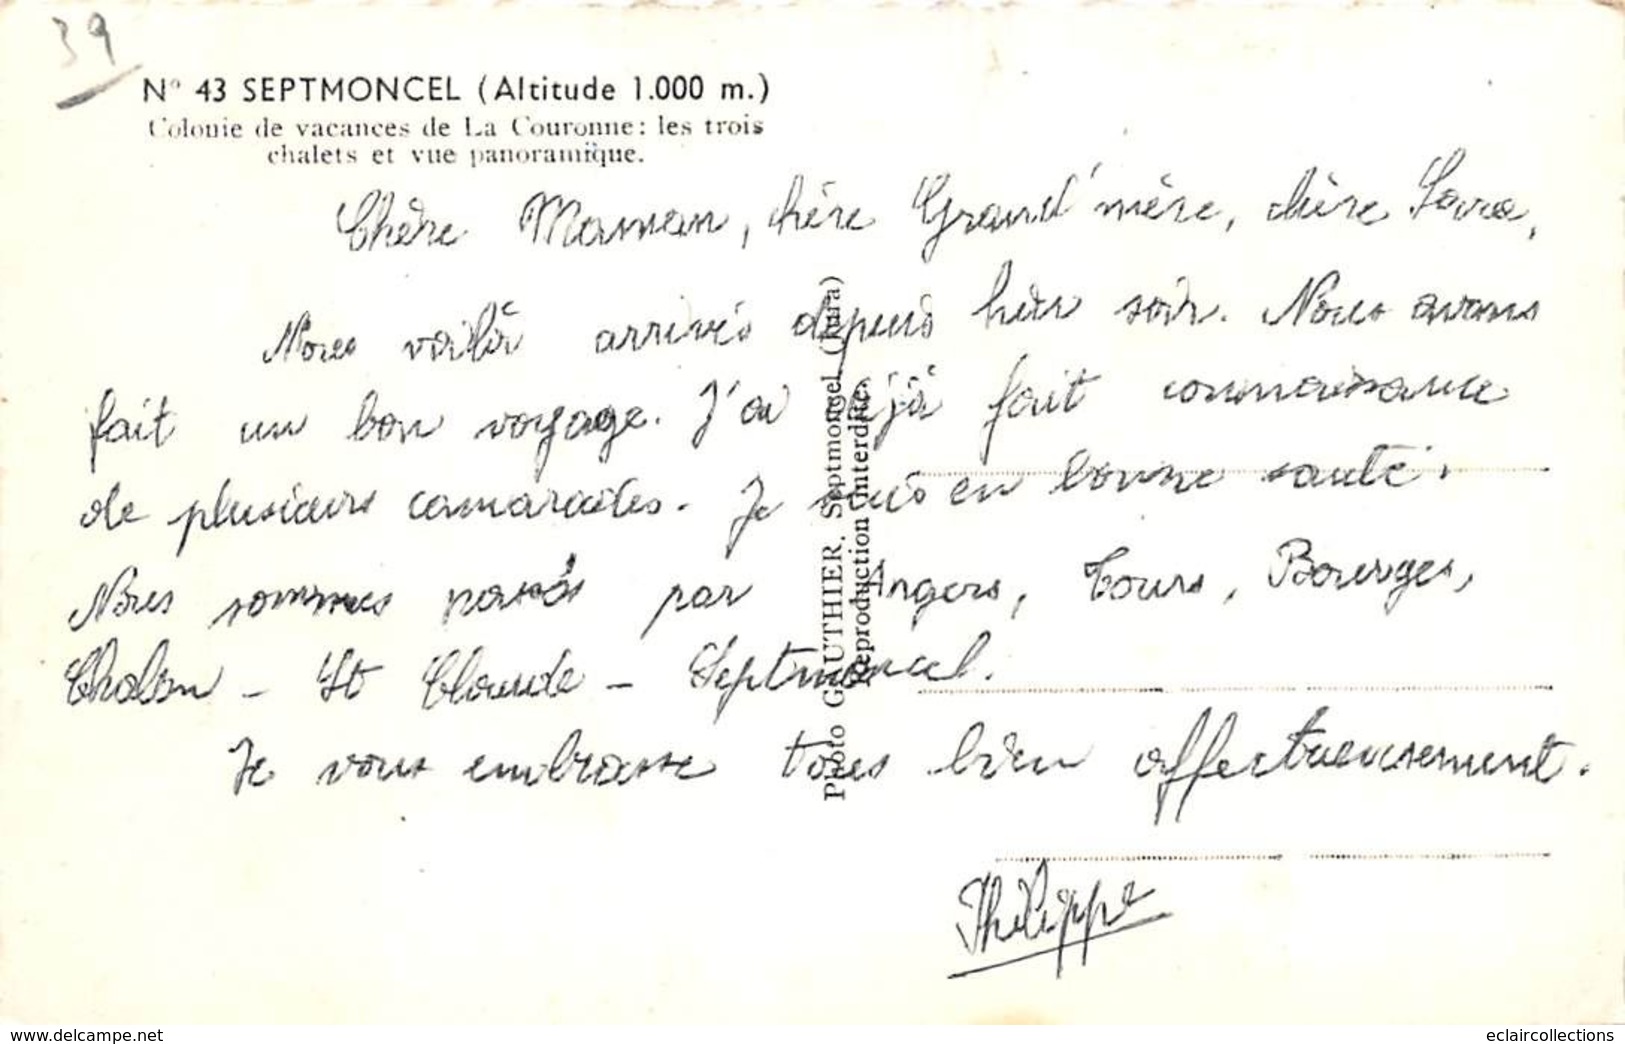 39
N° 43 SEPTMONCEL (Altitude 1.000 m.)
Colonie de vacances de La Couronne: les trois
chalets et vue panoramique.
Chère Maman, chère Grand'mère, chère
Nous voilà arrivés depuis hier soir. Nous avons
fait un bon voyage. J'ai déjà fait connaissance
de plusieurs camarades. Je suis en bonne santé.
Nous sommes passés par Angers, Tours, Bourges,
Chalon - St Claude - Septmoncel.
Je vous embrasse tous bien affectueusement.
Philippe
Photo GAUTHIER, Septmoncel (Jura)
Reproduction interdite.
www.delcampe.net
eclaircollections